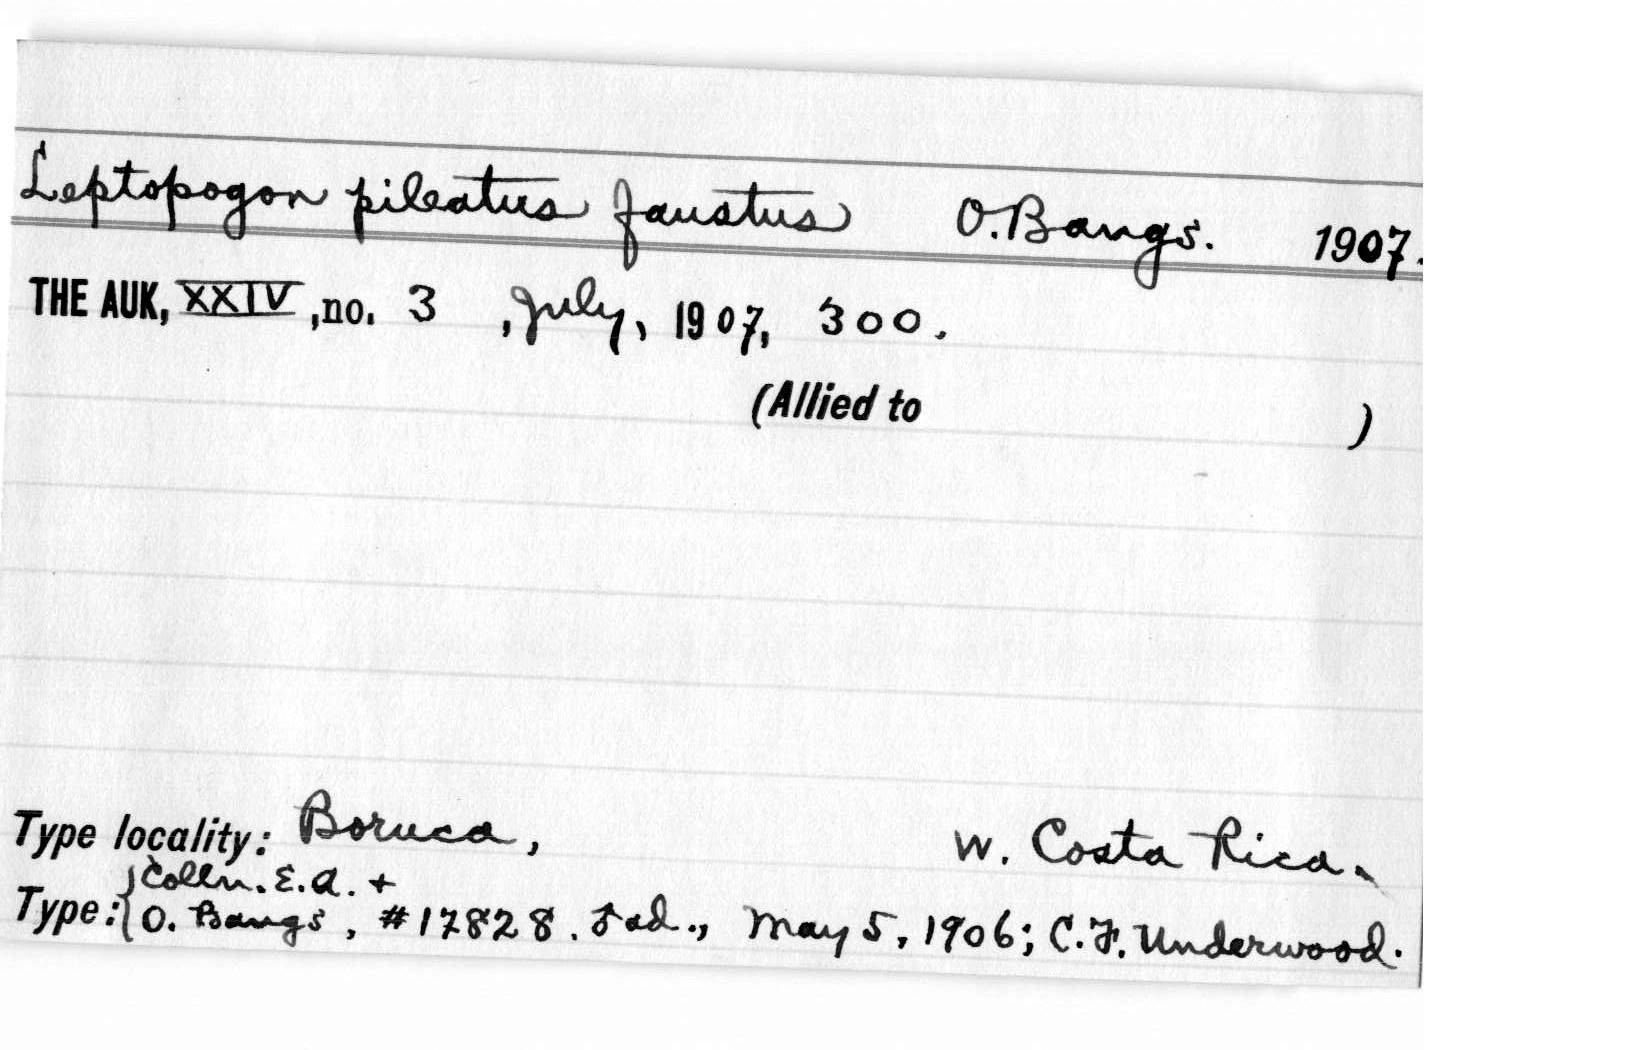 Leptopogon pileatus faustus O. Bangs. 1907.
THE AUK, XXIV, no. 3, July, 1907, 300.
(Allied to )
Type locality: Boruca, W. Costa Rica.
Colln. E.A. +
Type: O. Bangs, #17828. ad., May 5, 1906; C.F. Underwood.